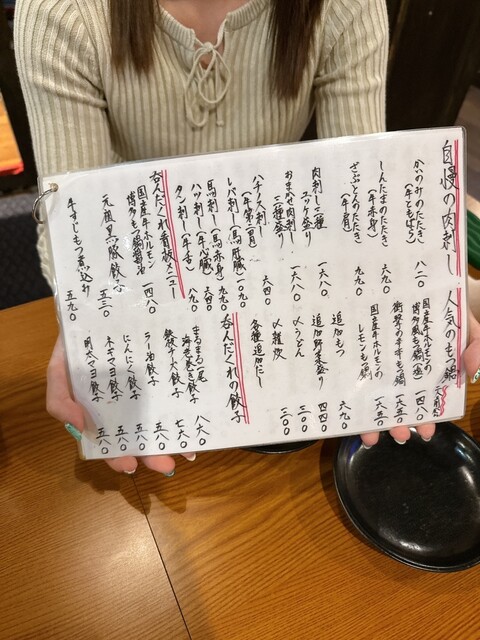 自慢の肉刺し
かいのみのたたき
(牛ともばら)
八二〇
しんたまのたたき
(牛赤身)
六九〇
ざぶとんのたたき
(牛肩)
九九〇
肉刺し三種
ユッケ盛り
一六八〇
おまかせ肉刺し
三種盛り
一六八〇
ハチノス刺し
(牛第二胃)
六四〇
レバ刺し(馬肝臓)
一〇九〇
馬刺し(馬赤身)
九九〇
ハツ刺し(牛心臓)
六四〇
タン刺し(牛舌)
七九〇
呑んだくれ看板メニュー
国産牛ホルモン
博多もつ鍋醤油
一四八〇
元祖黒豚餃子
五三〇
牛すじもつ煮込み
五九〇
人気のもつ鍋
国産牛ホルモンの
博多風もつ鍋
一四八〇
衝撃の辛牛もつ鍋
一六五〇
国産牛ホルモンの
レモンもつ鍋
一六五〇
追加もつ
六九〇
追加野菜盛り
四四〇
〆うどん
三〇〇
〆雑炊
三〇〇
各種追加だし
三〇〇
呑んだくれの餃子
まるまる一尾
海老巻き餃子
八六〇
鉄板チーズ餃子
七六〇
ラー油餃子
五八〇
にんにく餃子
五八〇
ネギマヨ餃子
五八〇
明太マヨ餃子
五八〇